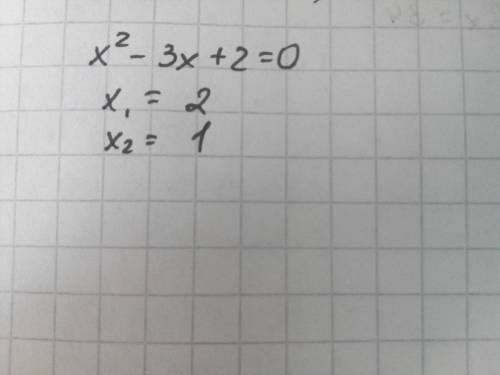 x² - 3x + 2 = 0
x₁ = 2
x₂ = 1